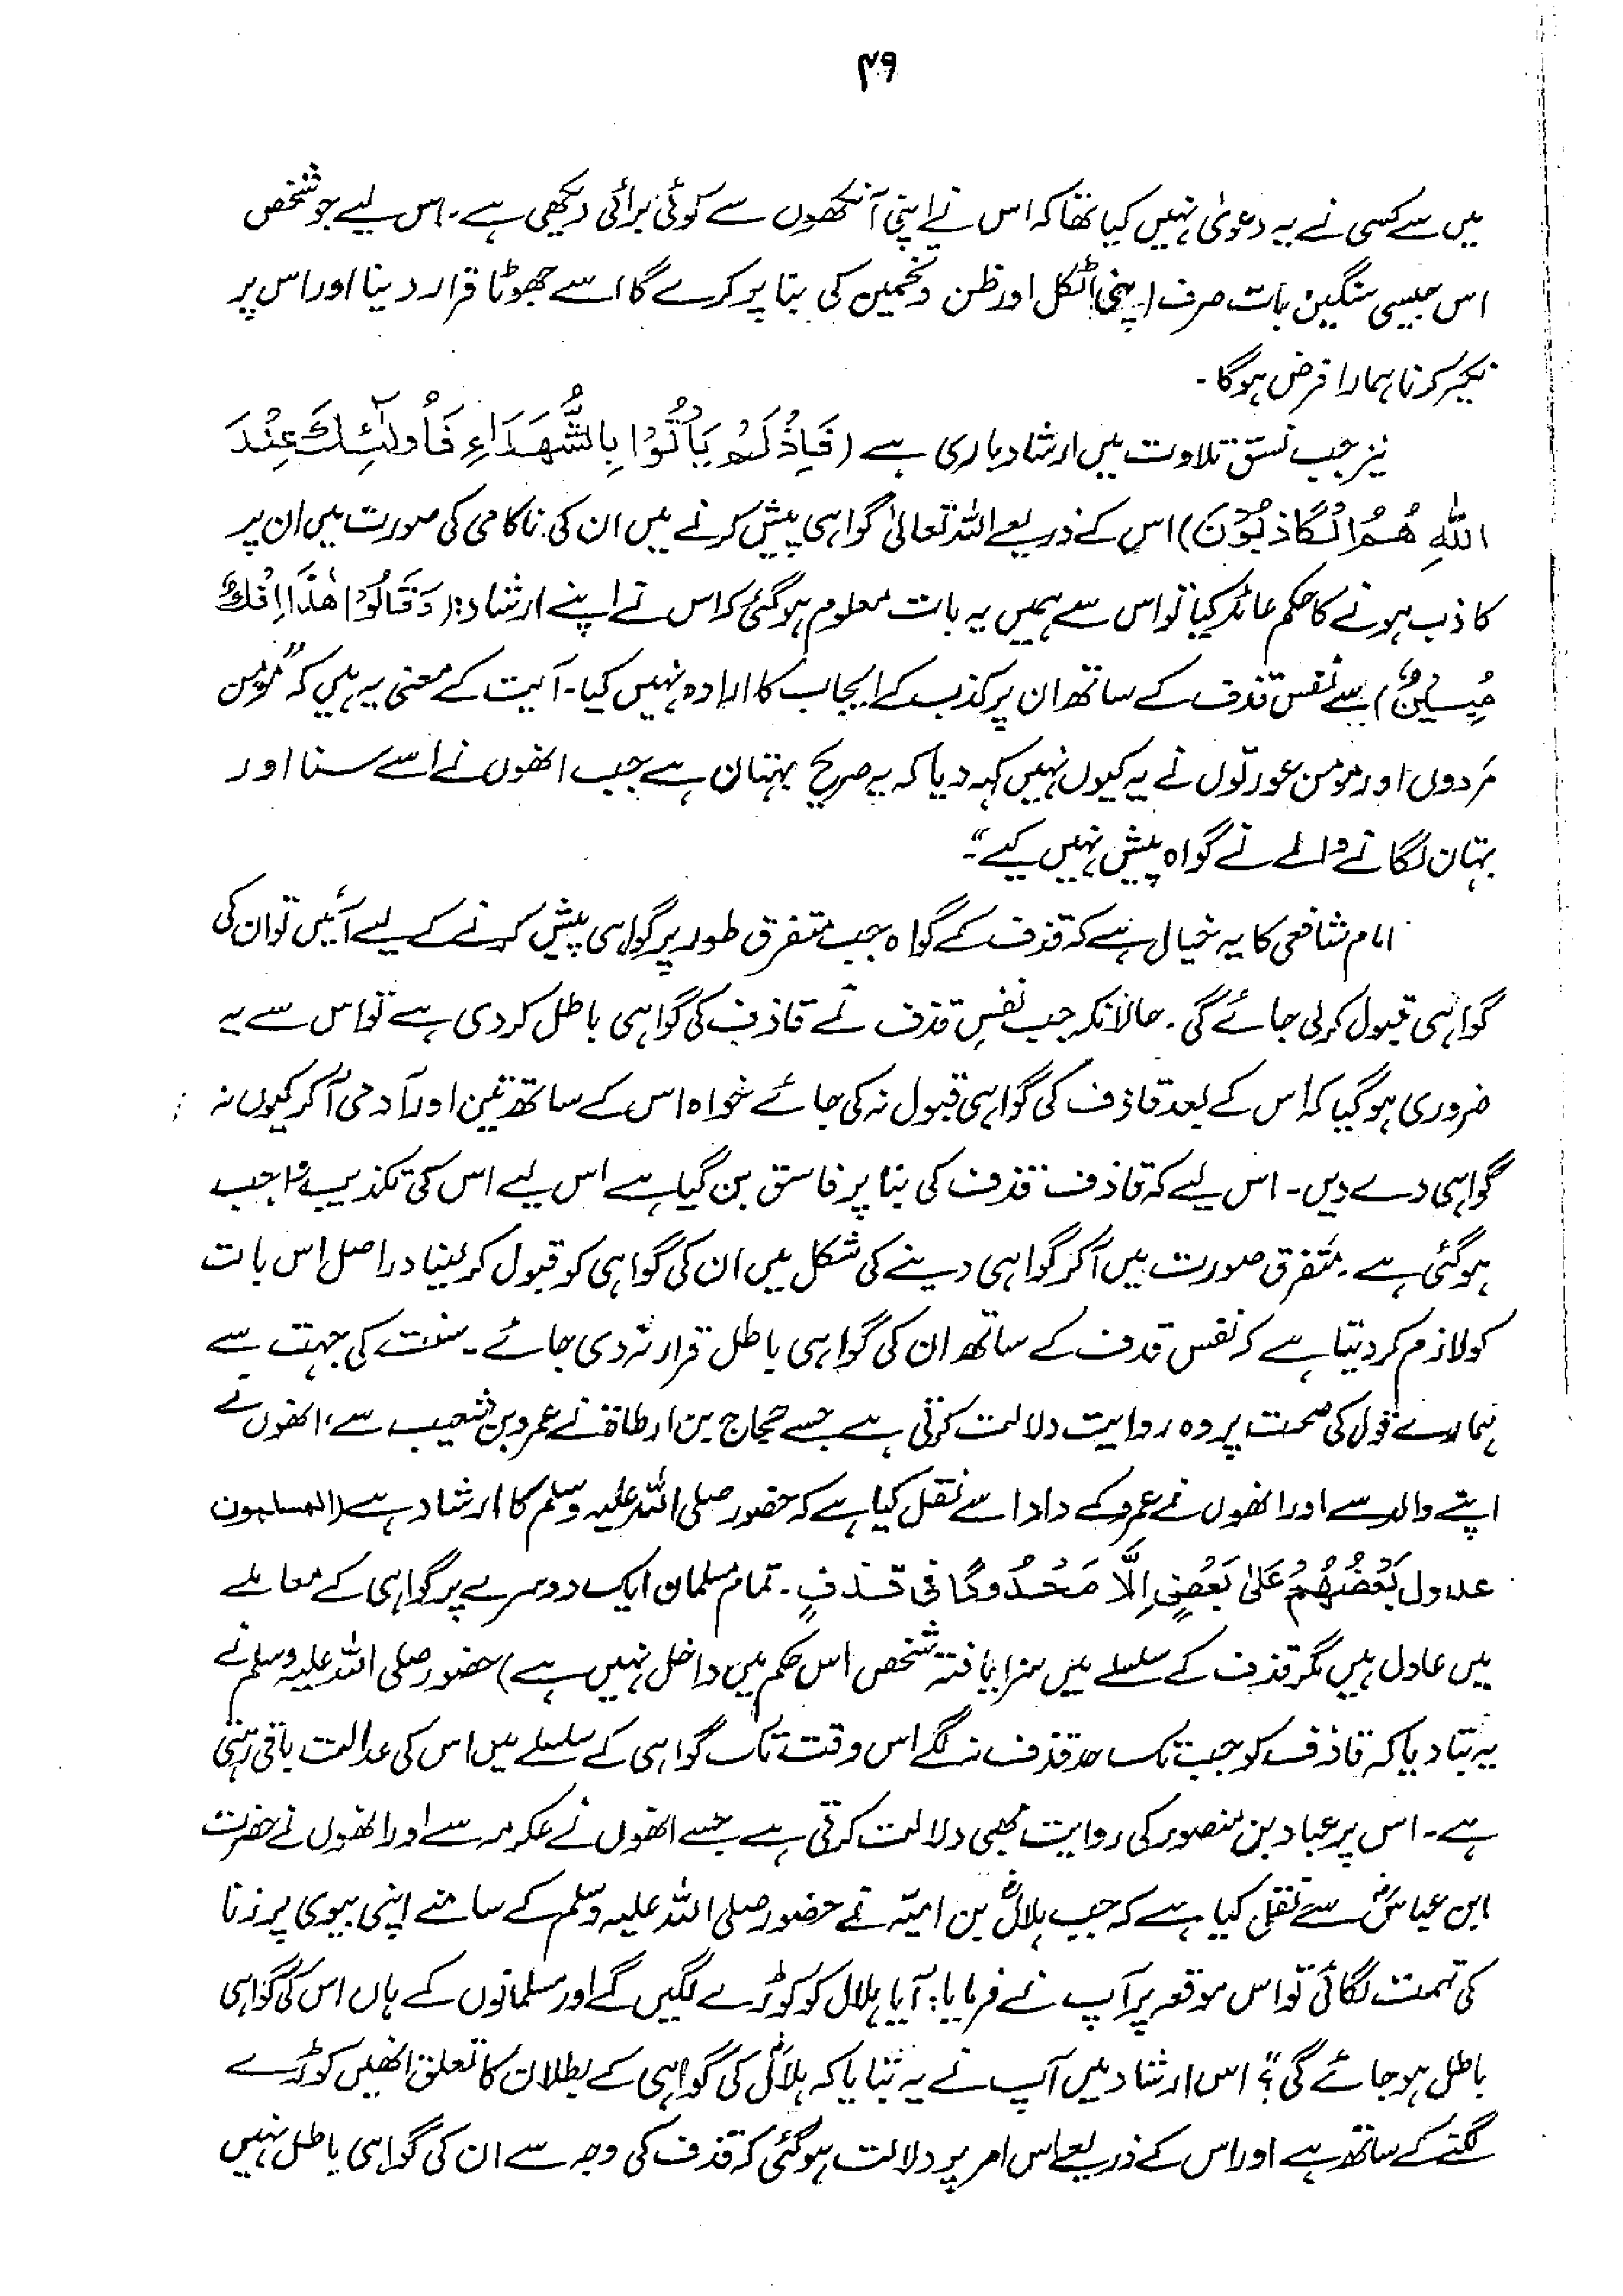 ۴۹
میں سے کسی نے یہ دعویٰ نہیں کیا تھا کہ اس نے اپنی آنکھوں سے کوئی برائی دیکھی ہے۔ اس لیے جو شخص
اس جیسی سنگین بات صرف اپنی اٹکل اور ظن و تخمین کی بنا پر کرے گا اسے جھوٹا قرار دینا اور اس پر
نکیر کرنا ہمارا فرض ہوگا۔
نیز جب نسق تلاوت میں ارشاد باری ہے (فَاِذْ لَمْ يَأْتُوْا بِالشُّهَدَاءِ فَاُولٰٓئِكَ عِنْدَ
اللّٰهِ هُمُ الْكَاذِبُوْنَ) اس کے ذریعے اللہ تعالیٰ گواہی پیش کرنے میں ان کی ناکامی کی صورت میں ان پر
کاذب ہونے کا حکم عائد کیا تو اس سے ہمیں یہ بات معلوم ہو گئی کہ اس نے اپنے ارشاد: (وَقَالُوْا هٰذَا اِفْكٌ
مُبِيْنٌ) سے نفس قذف کے ساتھ ان پر کذب کے ایجاب کا ارادہ نہیں کیا۔ آیت کے معنی یہ ہیں کہ “مومن
مردوں اور مومن عورتوں نے یہ کیوں نہیں کہہ دیا کہ یہ صریح بہتان ہے جب انھوں نے اسے سنا اور
بہتان لگانے والے نے گواہ پیش نہیں کیے”۔
امام شافعی کا یہ خیال ہے کہ قذف کے گواہ جب متفرق طور پر گواہی پیش کرنے کے لیے آئیں تو ان کی
گواہی قبول کر لی جائے گی۔ حالانکہ جب نفسِ قذف نے قاذف کی گواہی باطل کر دی ہے تو اس سے یہ
ضروری ہو گیا کہ اس کے بعد قاذف کی گواہی قبول نہ کی جائے خواہ اس کے ساتھ تین اور آدمی آ کر کیوں نہ
گواہی دے دیں۔ اس لیے کہ قاذف قذف کی بنا پر فاسق بن گیا ہے اس لیے اس کی تکذیب واجب
ہو گئی ہے۔ متفرق صورت میں آ کر گواہی دینے کی شکل میں ان کی گواہی کو قبول کر لینا دراصل اس بات
کو لازم کر دیتا ہے کہ نفس قذف کے ساتھ ان کی گواہی باطل قرار نہ دی جائے۔ سنت کی جہت سے
ہمارے قول کی صحت پر وہ روایت دلالت کرتی ہے جسے حجاج بن ارطاۃ نے عمرو بن شعیب سے، انھوں نے
اپنے والد سے اور انھوں نے عمرو کے دادا سے نقل کیا ہے کہ حضور صلی اللہ علیہ وسلم کا ارشاد ہے (المسلمون
عدول بَعْضُهُمْ عَلٰى بَعْضٍ اِلَّا مَحْدُوْدًا فى قذفٍ۔ تمام مسلمان ایک دوسرے پر گواہی کے معاملے
میں عادل ہیں مگر قذف کے سلسلے میں سزا یافتہ شخص اس حکم میں داخل نہیں ہے) حضور صلی اللہ علیہ وسلم نے
یہ بتا دیا کہ قاذف کو جب تک حد قذف نہ لگے اس وقت تک گواہی کے سلسلے میں اس کی عدالت باقی رہتی
ہے۔ اس پر عباد بن منصور کی روایت بھی دلالت کرتی ہے جسے انھوں نے عکرمہ سے اور انھوں نے حضرت
ابن عباسؓ سے نقل کیا ہے کہ جب ہلالؓ بن امیہ نے حضور صلی اللہ علیہ وسلم کے سامنے اپنی بیوی پر زنا
کی تہمت لگائی تو اس موقعہ پر آپ نے فرمایا: آیا ہلال کو کوڑے لگیں گے اور مسلمانوں کے ہاں اس کی گواہی
باطل ہو جائے گی؟” اس ارشاد میں آپ نے یہ بتایا کہ ہلالؓ کی گواہی کے بطلان کا تعلق انھیں کوڑے
لگنے کے ساتھ ہے اور اس کے ذریعے اس امر پر دلالت ہو گئی کہ قذف کی وجہ سے ان کی گواہی باطل نہیں